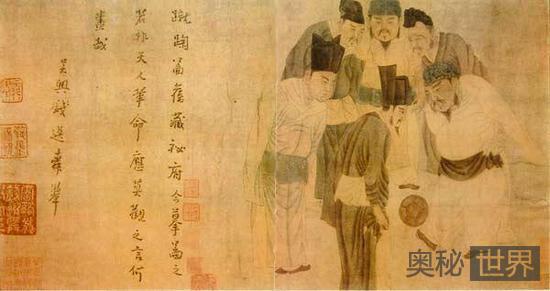 蹴踘啚舊藏祕府今摹啚之
若非天人革命應莫觀之言何
盡哉
吳興錢選舜舉
奥秘世界